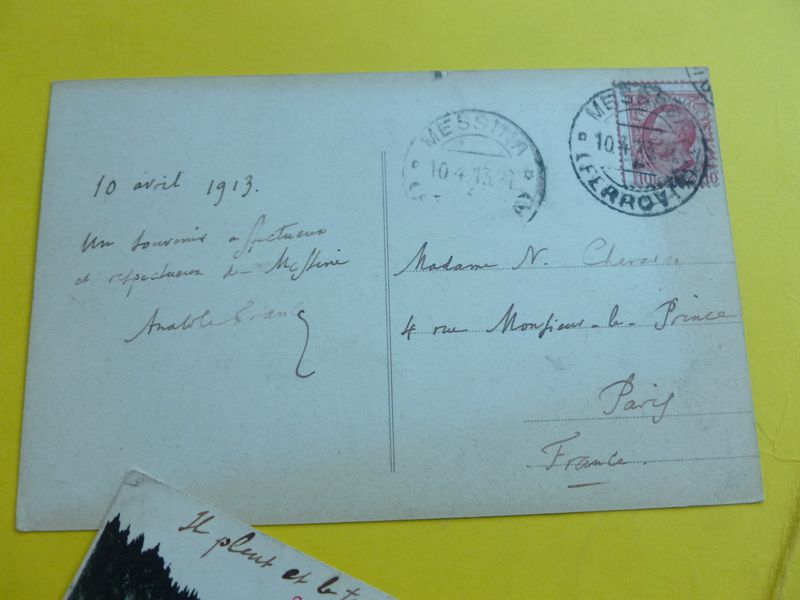 MESSINA
10.4.13.21
MESSINA
10.4.13
(FERROVIA)
10
10 avril 1913.
Un souvenir affectueux
et respectueux de Messine
Anatole France
Madame N. Charavay
4 rue Monsieur-le-Prince
Paris
France.
Il pleut et le